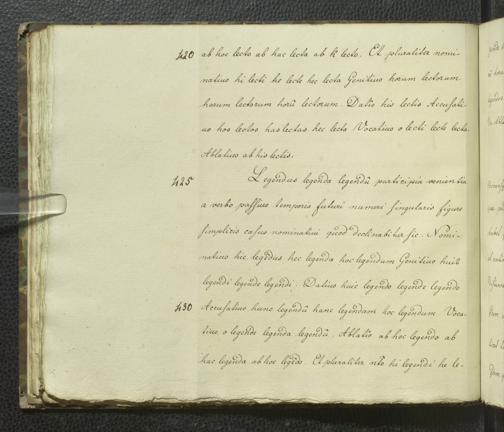 420 ab hoc lecto ab hac lecta ab h̄ lecto. Et pluraliter nomi-
natiuo hi lecti he lecte hec lecta Genitiuo horum lectorum
harum lectarum horū lectorum. Datio his lectis Accusati-
uo hos lectos has lectas hec lecta Vocatiuo o lecti lecte lecta
Ablatiuo ab his lectis.
425 Legendus legenda legendū participia venientia
a verbo passiuo temporis futuri numeri singularis figure
simplicis casus nominatiui quod declinabitur sic. Nomi-
natiuo hic legēdus hec legenda hoc legendum Genitiuo huiꝰ
legendi legende legendi. Datiuo huic legendo legende legendo
430 Accusatiuo hunc legendū hanc legendam hoc legendum Voca-
tiuo o legende legenda legendū. Ablatio ab hoc legendo ab
hac legenda ab hoc legēdo. Et pluraliter nt̄o hi legendi he le-